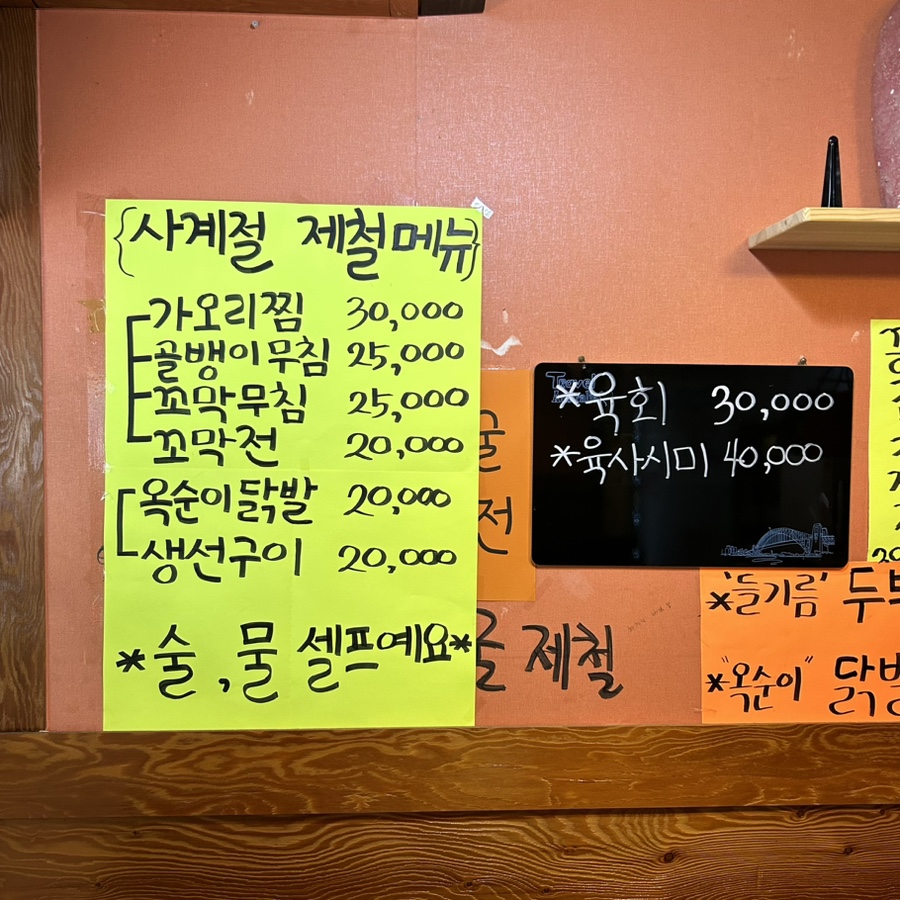 {사계절 제철메뉴}
가오리찜 30,000
골뱅이무침 25,000
꼬막무침 25,000
꼬막전 20,000
옥순이닭발 20,000
생선구이 20,000
*술,물 셀프예요*
굴
전
굴 제철
*육회 30,000
*육사시미 40,000
*'들기름' 두부
*"옥순이" 닭발